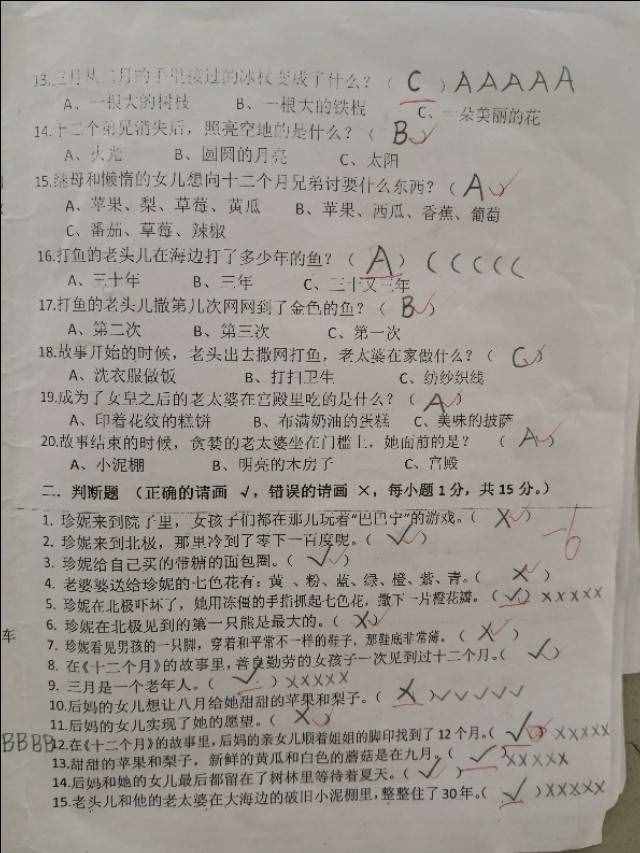 13.三月从二月的手里接过的冰杖变成了什么？（ C ）AAAAA
A、一根大的树枝 B、一根大的铁棍 C、一朵美丽的花
14.十二个弟兄消失后，照亮空地的是什么？（ B ）
A、火光 B、圆圆的月亮 C、太阳
15.继母和懒惰的女儿想向十二个月兄弟讨要什么东西？（ A ）
A、苹果、梨、草莓、黄瓜 B、苹果、西瓜、香蕉、葡萄
C、番茄、草莓、辣椒
16.打鱼的老头儿在海边打了多少年的鱼？（ A ）CCCCC
A、三十年 B、三年 C、三十又三年
17.打鱼的老头儿撒第几次网网到了金色的鱼？（ B ）
A、第二次 B、第三次 C、第一次
18.故事开始的时候，老头出去撒网打鱼，老太婆在家做什么？（ C ）
A、洗衣服做饭 B、打扫卫生 C、纺纱织线
19.成为了女皇之后的老太婆在宫殿里吃的是什么？（ A ）
A、印着花纹的糕饼 B、布满奶油的蛋糕 C、美味的披萨
20.故事结束的时候，贪婪的老太婆坐在门槛上，她面前的是？（ A ）
A、小泥棚 B、明亮的木房子 C、宫殿
二．判断题 （正确的请画 √，错误的请画 ×，每小题1分，共15分。）
1. 珍妮来到院子里，女孩子们都在那儿玩着“巴巴宁”的游戏。（ × ）
2. 珍妮来到北极，那里冷到了零下一百度呢。（ √ ） -6
3. 珍妮给自己买的带糖的面包圈。（ √ ）
4. 老婆婆送给珍妮的七色花有：黄、粉、蓝、绿、橙、紫、青。（ × ）
5. 珍妮在北极吓坏了，她用冻僵的手指抓起七色花，撒下一片橙花瓣。（ √ ）×××××
6. 珍妮在北极见到的第一只熊是最大的。（ × ）
7. 珍妮看见男孩的一只脚，穿着和平常不一样的鞋子，那鞋底非常薄。（ × ）
8. 在《十二个月》的故事里，善良勤劳的女孩子一次见到过十二个月。（ √ ）
9. 三月是一个老年人。（ √ ）×××××
10.后妈的女儿想让八月给她甜甜的苹果和梨子。（ × ）√√√√√
11.后妈的女儿实现了她的愿望。（ × ）
BBBB 12.在《十二个月》的故事里，后妈的亲女儿顺着姐姐的脚印找到了12个月。（ √ ）×××××
13.甜甜的苹果和梨子，新鲜的黄瓜和白色的蘑菇是在九月。（ √ ）×××××
14.后妈和她的女儿最后都留在了树林里等待着夏天。（ √ ）
15.老头儿和他的老太婆在大海边的破旧小泥棚里，整整住了30年。（ √ ）×××××
车